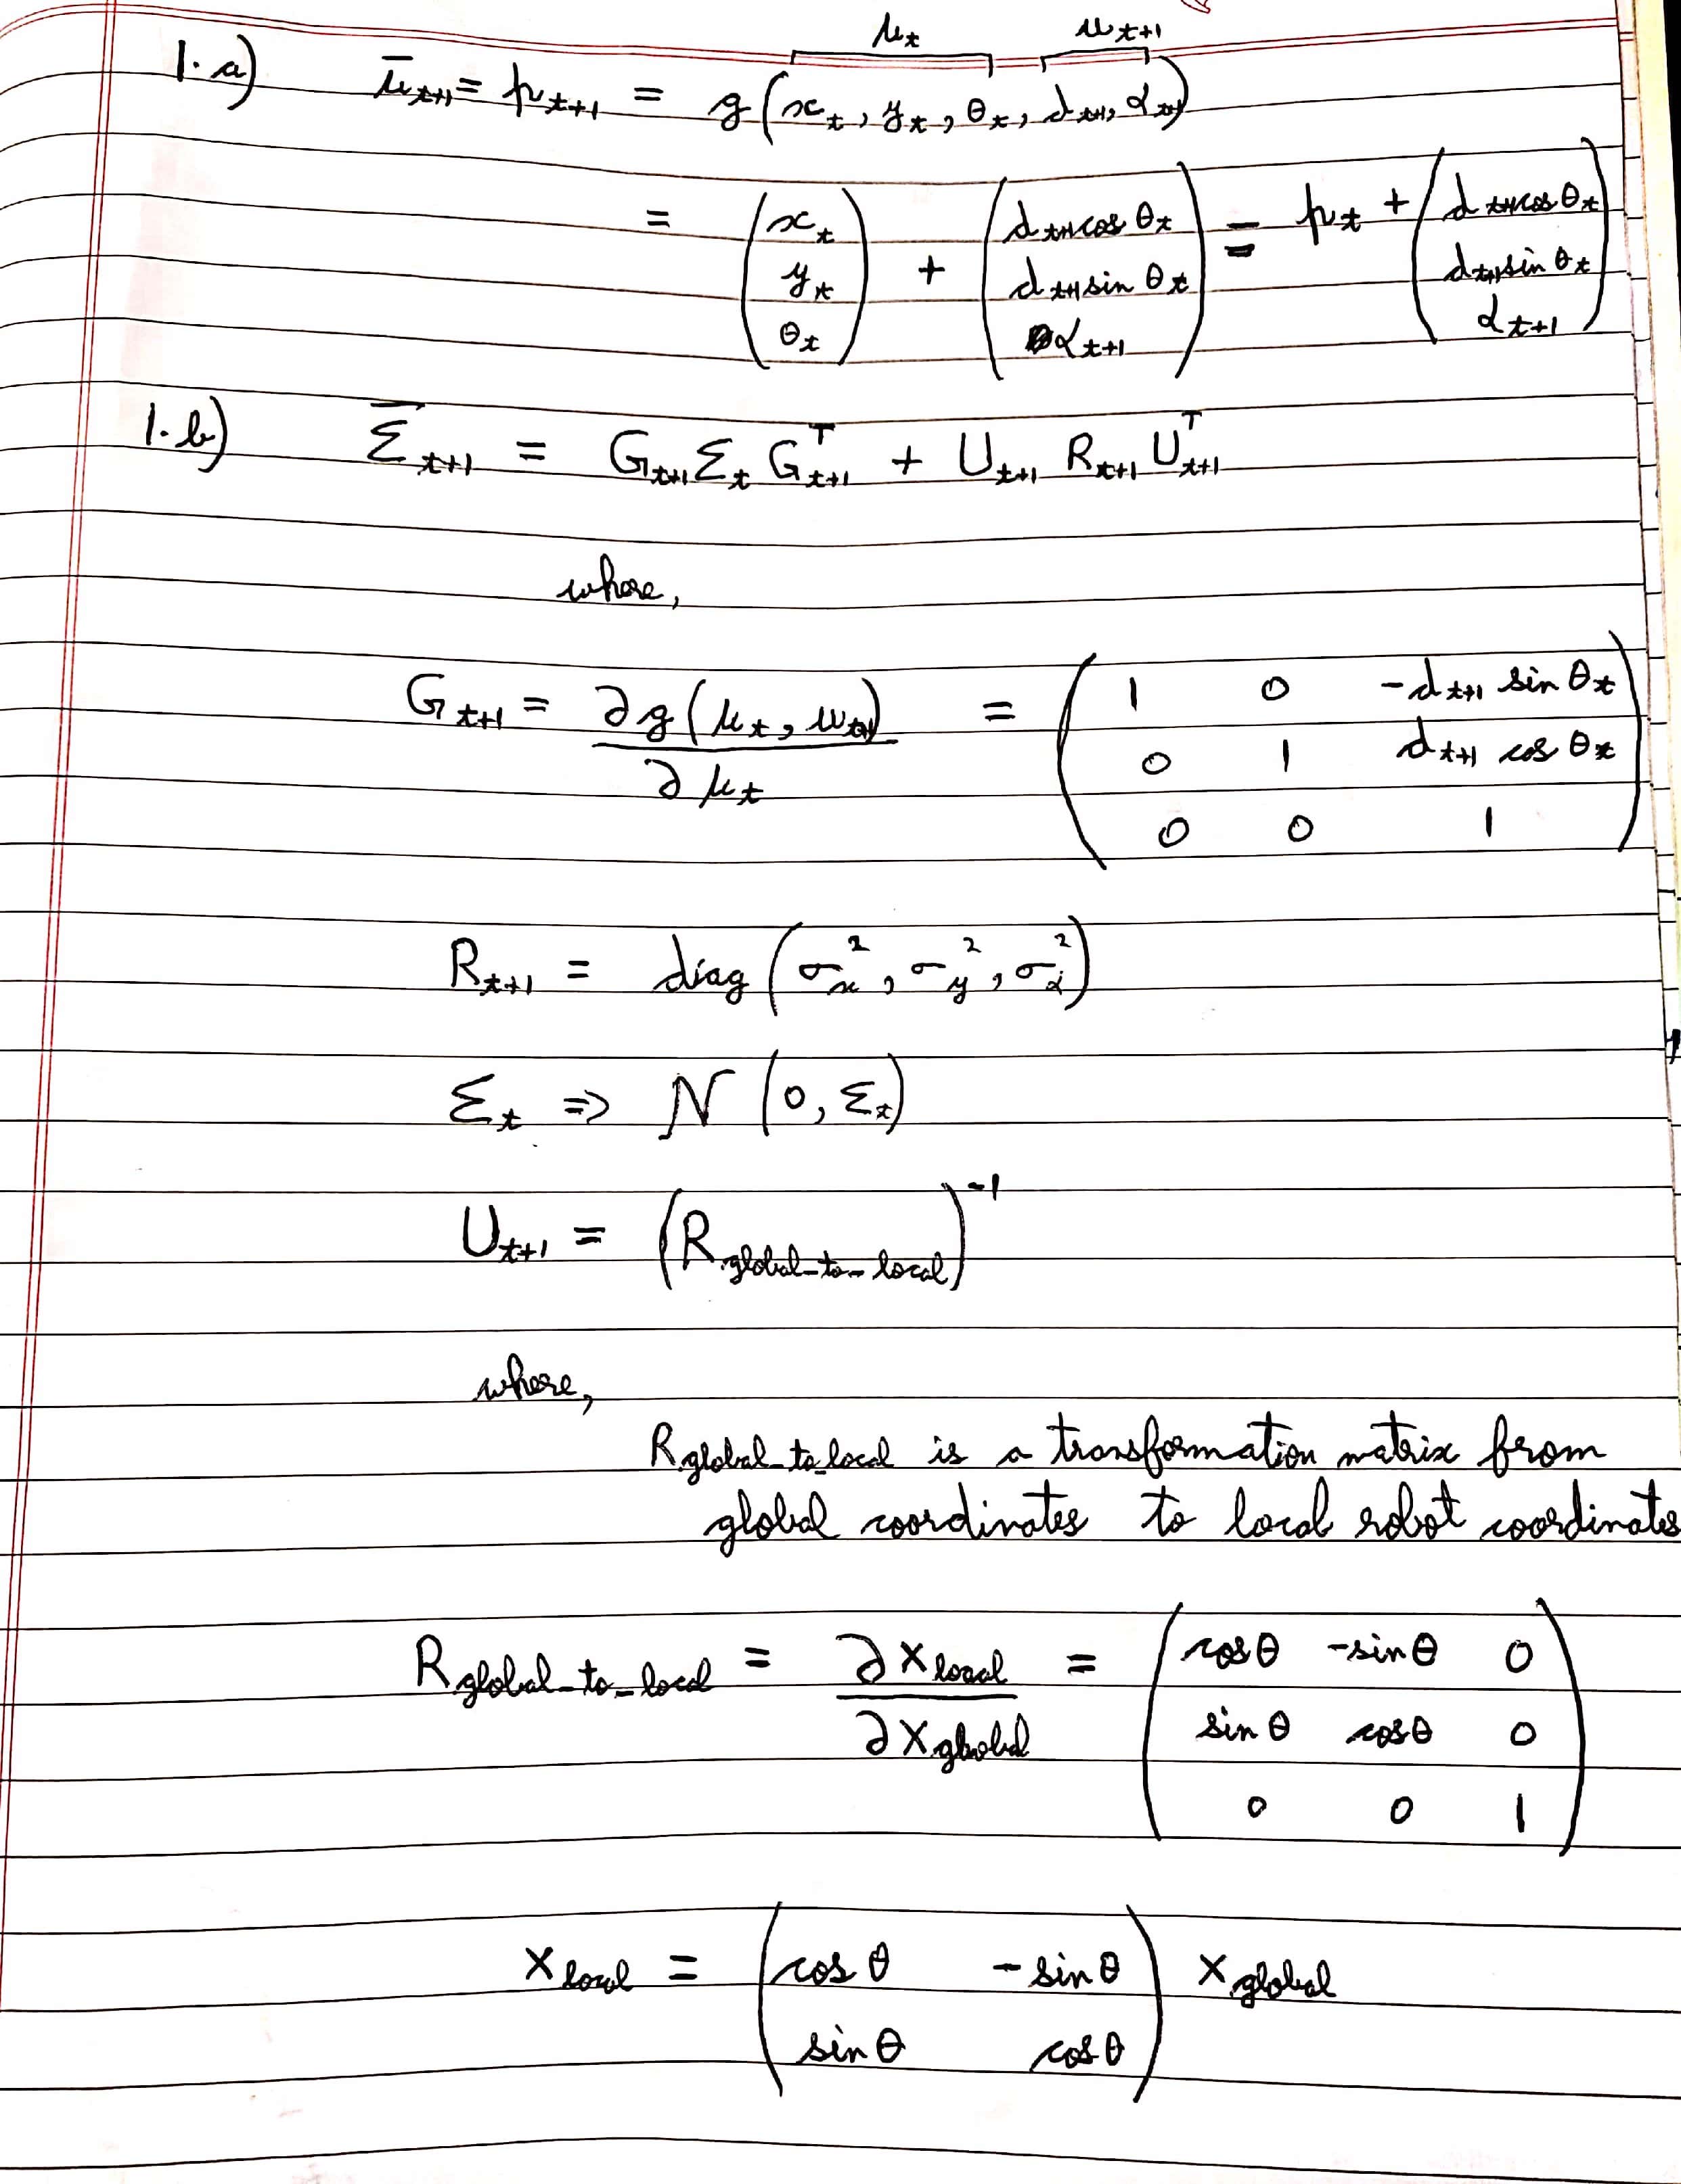 μ_t u_{t+1}
1.a) μ̄_{t+1} = p_{t+1} = g(x_t, y_t, θ_t, d_{t+1}, α_{t+1})
= (x_t ; y_t ; θ_t) + (d_{t+1} cos θ_t ; d_{t+1} sin θ_t ; α_{t+1}) = p_t + (d_{t+1} cos θ_t ; d_{t+1} sin θ_t ; α_{t+1})
1.b) Σ̄_{t+1} = G_{t+1} Σ_t G_{t+1}^T + U_{t+1} R_{t+1} U_{t+1}^T
where,
G_{t+1} = ∂g(μ_t, u_{t+1}) / ∂μ_t = (1 0 -d_{t+1} sin θ_t ; 0 1 d_{t+1} cos θ_t ; 0 0 1)
R_{t+1} = diag(σ_x^2, σ_y^2, σ_α^2)
Σ_t => N(0, Σ_t)
U_{t+1} = (R_{global_to_local})^{-1}
where,
R_{global_to_local} is a transformation matrix from
global coordinates to local robot coordinates
R_{global_to_local} = ∂X_{local} / ∂X_{global} = (cosθ -sinθ 0 ; sinθ cosθ 0 ; 0 0 1)
X_{local} = (cosθ -sinθ ; sinθ cosθ) X_{global}